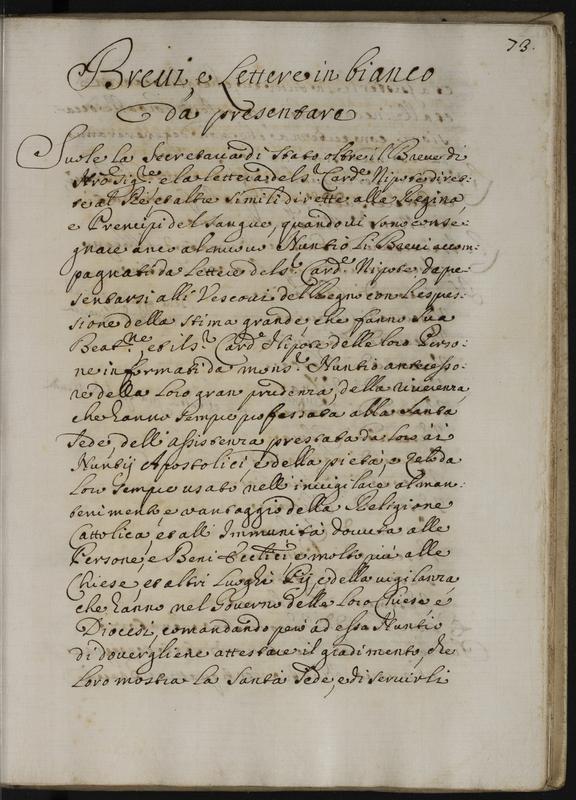 73.
Breui, e Lettere in bianco
da presentare
Suole la Secretaria di Stato oltre il Breue di
Nrõ Sigre. e la lettera del Sr. Carde. Nipote diret=
te al Rè et altre simili dirette alla Regina
e Prencipi del sangue, quando ui sono conse=
gnare anco al nuouo Nuntio li Breui accom=
pagnati da Lettere del Sr. Carde. Nipote da pre=
sentarsi alli Vescoui del Regno con l'espres=
sione della stima grande che fanno Sua
Beatne. et il Sr. Carde. Nipote delle loro Perso=
ne informati da monsr. Nuntio antecesso=
re della loro gran prudenza, della riuerenza
che hanno sempre professata alla Santa
Sede, dell'assistenza prestata da loro ai
Nuntij Apostolici, e della pietà, e zelo da
loro sempre usato nell'inuigilare al man=
tenimento e vantaggio della Religione
Cattolica, et all'Immunità douuta alle
Persone, e Beni Ecclici. e molto più alle
Chiese et altri Luoghi Pij, e della vigilanza
che hanno nel Gouerno delle loro Chiese e
Diocesi, comandando però ad essa Nuntio
di douergliene attestare il gradimento, che
loro mostra la Santa Sede, e di seruirli